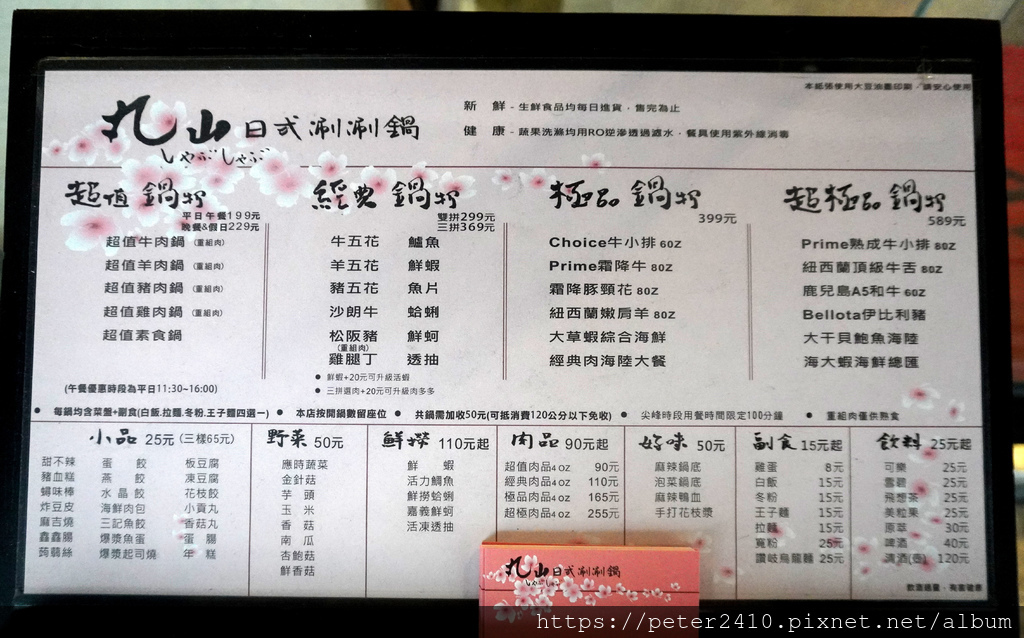 本紙張使用大豆油墨印刷，請安心使用
丸山日式涮涮鍋
しゃぶしゃぶ
新 鮮 - 生鮮食品均每日進貨，售完為止
健 康 - 蔬果洗滌均用RO逆滲透過濾水，餐具使用紫外線消毒
超值 鍋物
平日午餐199元
晚餐&假日229元
超值牛肉鍋 (重組肉)
超值羊肉鍋 (重組肉)
超值豬肉鍋 (重組肉)
超值雞肉鍋 (重組肉)
超值素食鍋
(午餐優惠時段為平日11:30~16:00)
經典 鍋物
雙拼299元
三拼369元
牛五花 鱸魚
羊五花 鮮蝦
豬五花 魚片
沙朗牛 蛤蜊
松阪豬 鮮蚵
(重組肉)
雞腿丁 透抽
● 鮮蝦+20元可升級活蝦
● 三拼選肉+20元可升級肉多多
極品 鍋物
399元
Choice牛小排 6OZ
Prime霜降牛 8OZ
霜降豚頸花 8OZ
紐西蘭嫩肩羊 8OZ
大草蝦綜合海鮮
經典肉海陸大餐
超極品 鍋物
589元
Prime熟成牛小排 8OZ
紐西蘭頂級牛舌 8OZ
鹿兒島A5和牛 6OZ
Bellota伊比利豬
大干貝鮑魚海陸
海大蝦海鮮總匯
● 每鍋均含菜盤+副食(白飯.拉麵.冬粉.王子麵四選一) ● 本店按開鍋數留座位 ● 共鍋需加收50元(可抵消費120公分以下免收) ● 尖峰時段用餐時間限定100分鐘 ● 重組肉僅供熟食
小品 25元 (三樣65元)
甜不辣 蛋餃 板豆腐
豬血糕 燕餃 凍豆腐
蟳味棒 水晶餃 花枝餃
炸豆皮 海鮮肉包 小貢丸
麻吉燒 三記魚餃 香菇丸
鑫鑫腸 爆漿魚蛋 蛋腸
蒟蒻絲 爆漿起司燒 年糕
野菜 50元
應時蔬菜
金針菇
芋頭
玉米
香菇
南瓜
杏鮑菇
鮮香菇
鮮撈 110元起
鮮蝦
活力鯛魚
鮮撈蛤蜊
嘉義鮮蚵
活凍透抽
肉品 90元起
超值肉品4oz 90元
經典肉品4oz 110元
極品肉品4oz 165元
超極品4oz 255元
好味 50元
麻辣鍋底
泡菜鍋底
麻辣鴨血
手打花枝漿
副食 15元起
雞蛋 8元
白飯 15元
冬粉 15元
王子麵 15元
拉麵 15元
寬粉 25元
讚岐烏龍麵 25元
飲料 25元起
可樂 25元
雪碧 25元
飛想茶 25元
美粒果 25元
原萃 30元
啤酒 40元
清酒(壺) 120元
飲酒過量，有害健康
丸山日式涮涮鍋
しゃぶしゃぶ
https://peter2410.pixnet.net/album